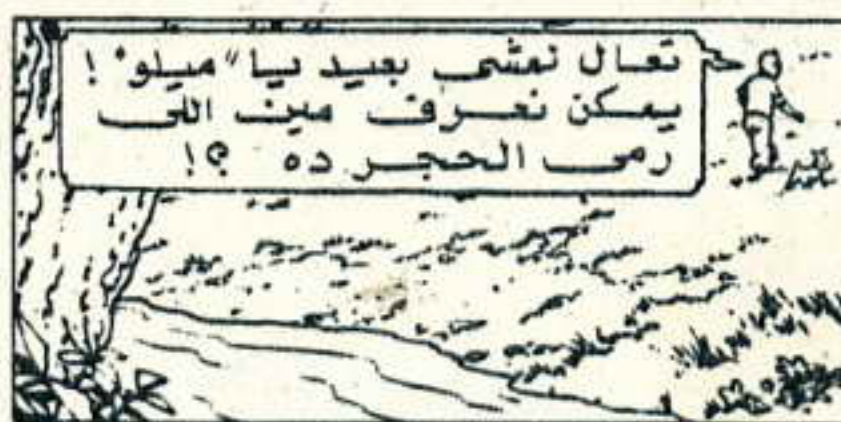 تعال نمشى بعيد يا "ميلو" !
يمكن نعرف مين اللى
رمى الحجر ده ؟!